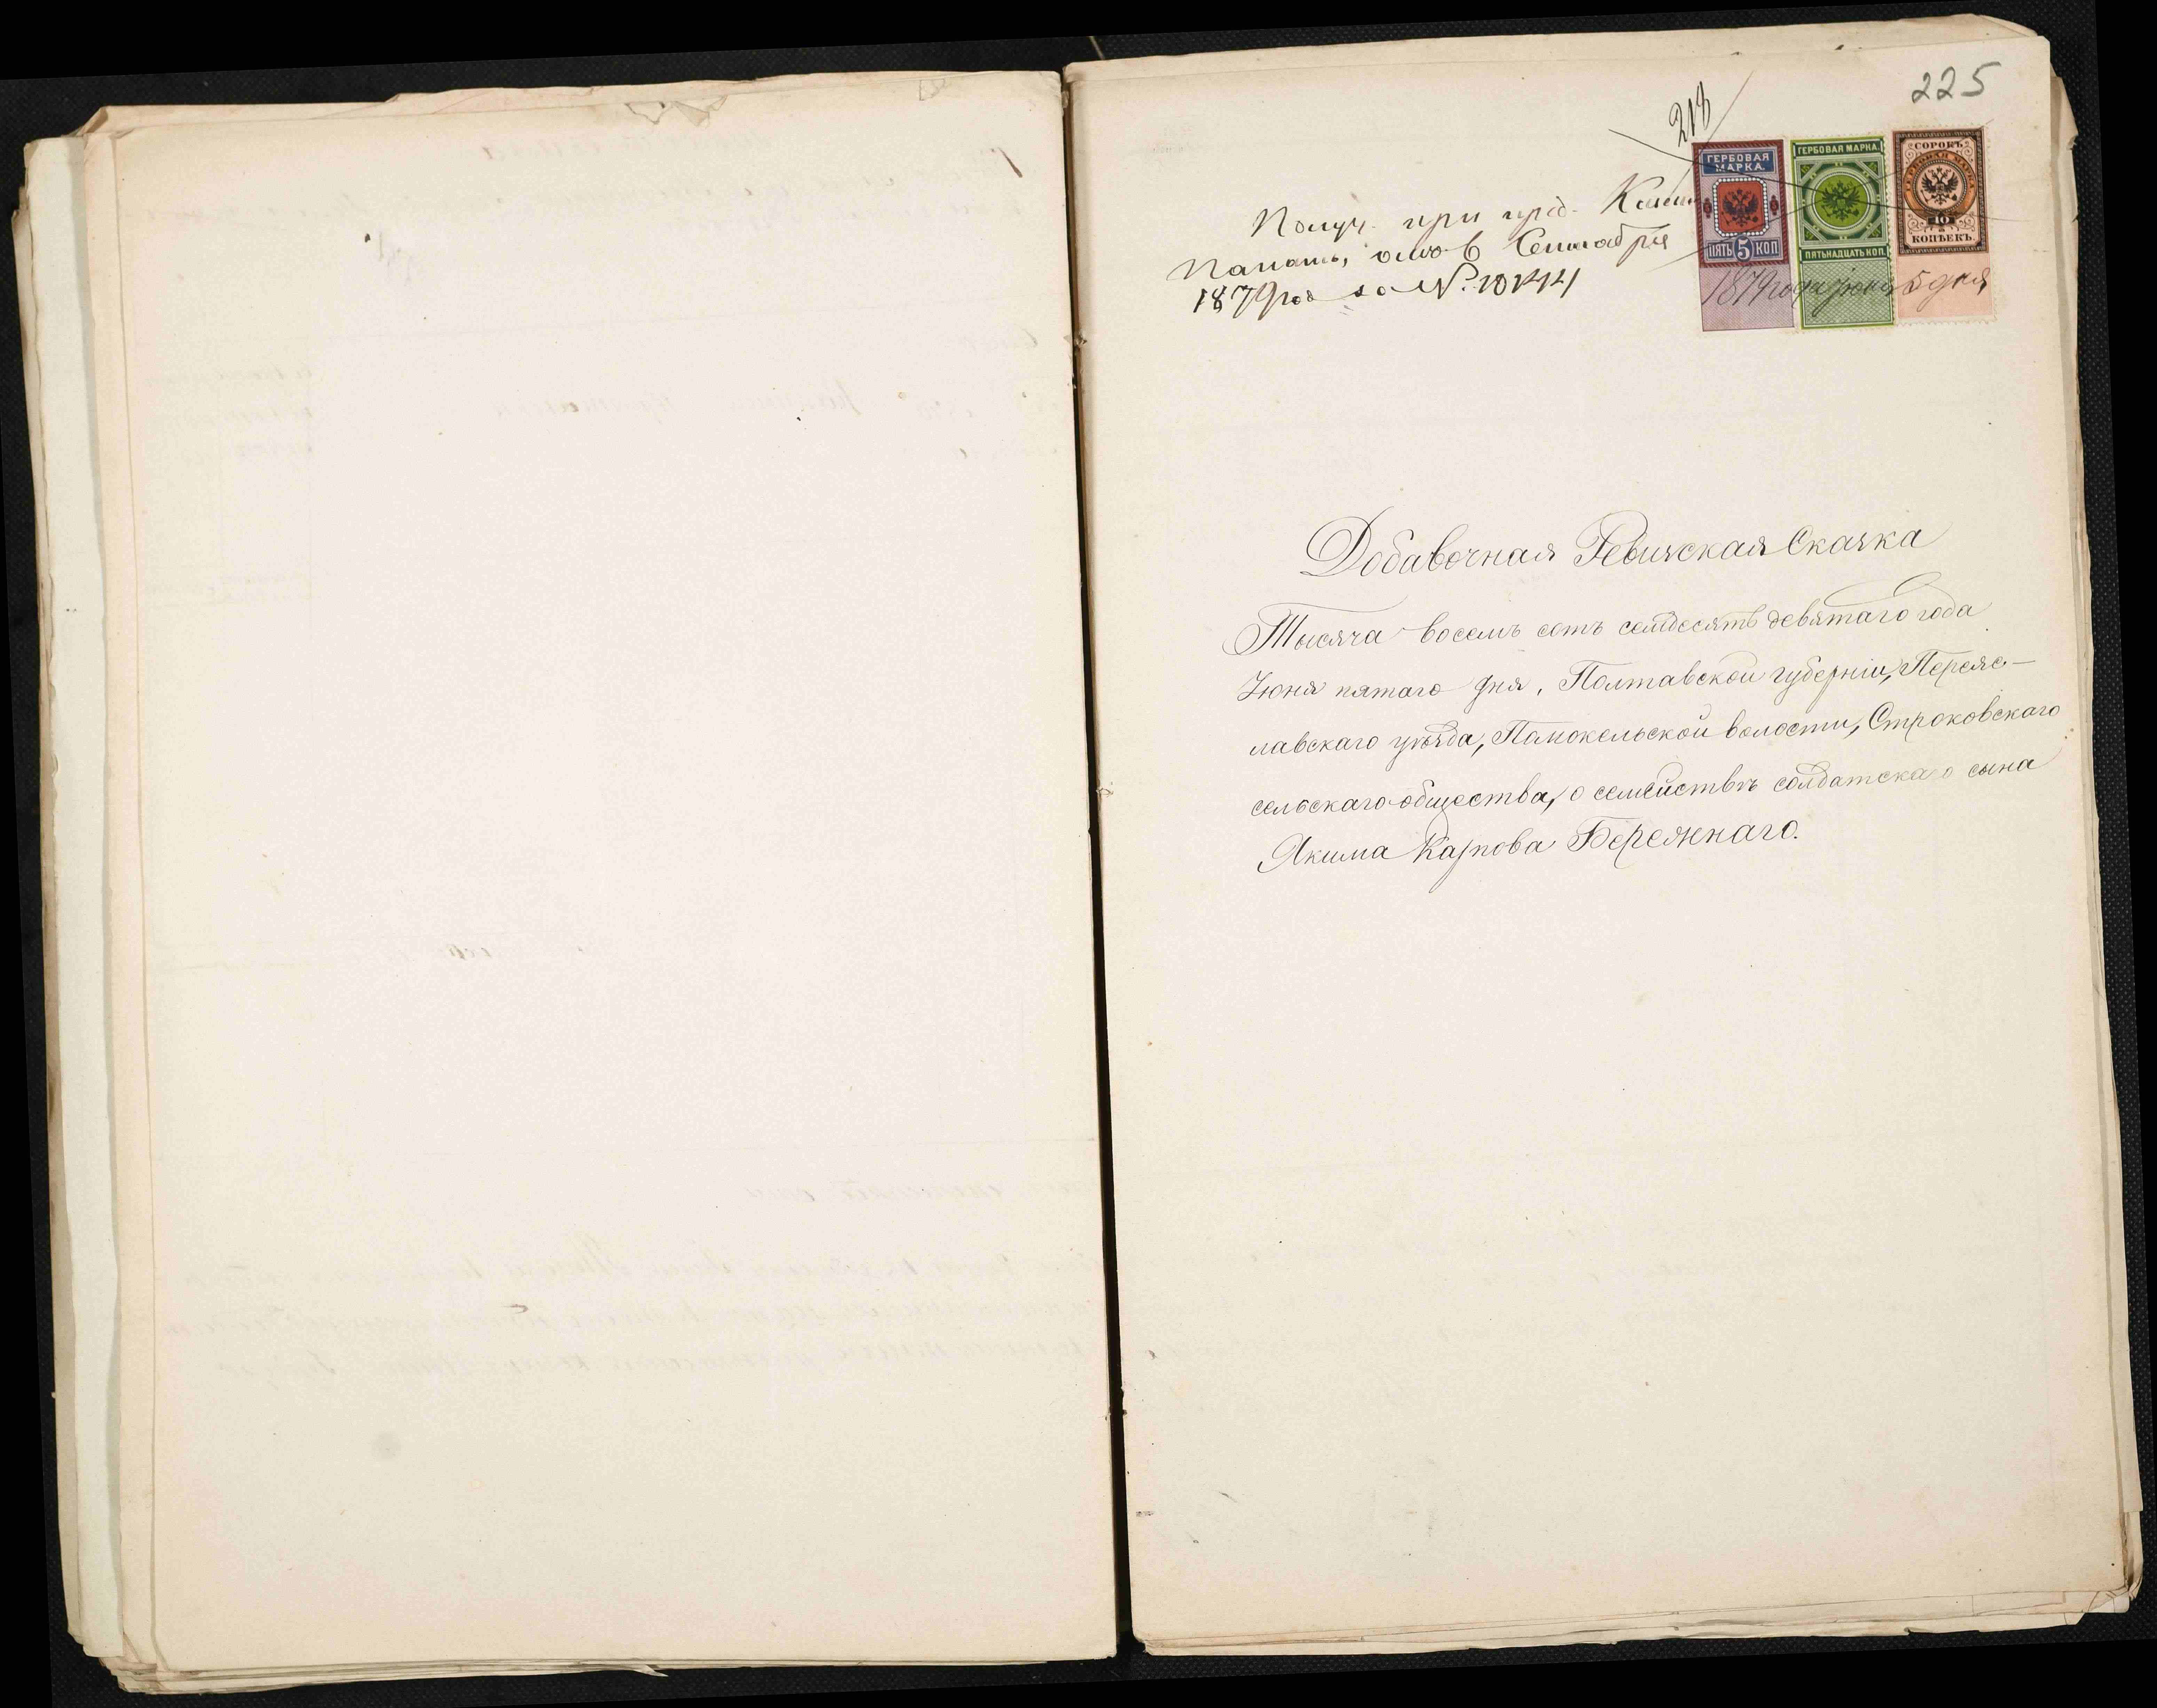 225
213
ГЕРБОВАЯ МАРКА.
ПЯТЬ 5 КОП
ГЕРБОВАЯ МАРКА.
ПЯТЬНАДЦАТЬ КОП.
СОРОКЪ
ГЕРБОВАЯ МАРКА
40
КОПѢЕКЪ.
1879 года іюня 5 дня
Получ. при пред. Казен
Палаты, отъ 6 Сентября
1879 год за №
Добавочная Ревизская Сказка
Тысяча восемь сотъ семдесятъ девятаго года
Іюня пятаго дня, Полтавской губерніи, Переяс-
лавскаго уѣзда, Помокельской волости, Строковскаго
сельскаго общества, о семействѣ солдатскаго сына
Якима Карпова Бережнаго.